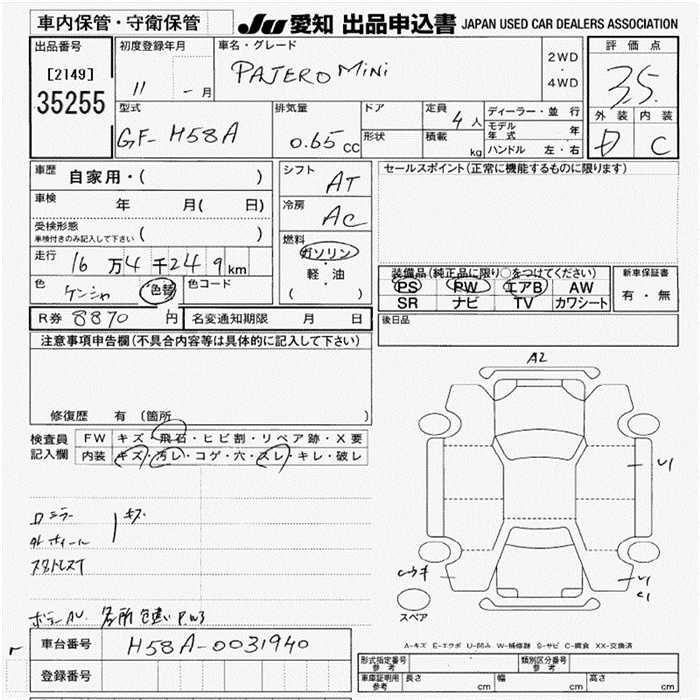 車内保管・守衛保管 JU 愛知 出品申込書 JAPAN USED CAR DEALERS ASSOCIATION
出品番号 初度登録年月 車名・グレード 評価点
[2149] 11 - 月 PAJERO MINI 2WD・4WD 3.5
35255
型式 排気量 ドア 定員 4人 ディーラー・並行 外装 内装
GF- H58A 0.65 CC 形状 積載 kg モデル年式 年 D C
ハンドル 左・右
車歴 自家用・( ) シフト AT セールスポイント(正常に機能するものに限ります)
車検 年 月( 日) 冷房 AC
受検形態 ( )
車検付きのみ記入して下さい
走行 16万4千249km 燃料 ガソリン・軽・油 ( )
装備品(純正品に限り○をつけてください) 新車保証書
色 ケンシャ 色替 色コード PS PW エアB AW 有・無
SR ナビ TV カワシート
R券 8870 円 名変通知期限 月 日 後日品
注意事項申告欄(不具合内容等は具体的に記入して下さい)
A2
修復歴 有 (箇所
検査員記入欄 FW キズ・飛石・ヒビ割・リペア跡・X要
内装 キズ・汚レ・コゲ・穴・スレ・キレ・破レ
U1
ロ ミラー キズ
外 ホイール
スタットレスT
U1
C1
スペア
ボデー AU 各所 色違い P.W3
A-キズ E-エクボ U-凹み W-補修跡 S-サビ C-腐食 XX-交換済
車台番号 H58A-0031940
登録番号
形式指定番号 参考 類別区分番号 参考
車庫証明用 参考 長さ cm 幅 cm 高さ cm